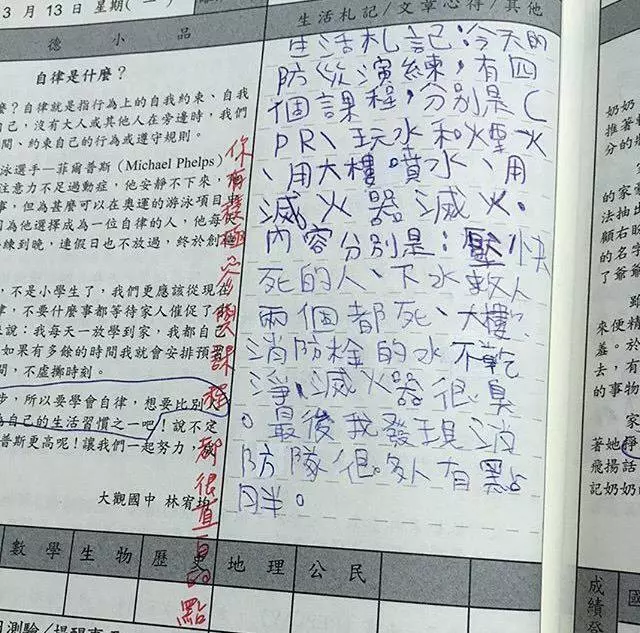 3 月 13 日 星期(一)
德 小 品
自律是什麼？
麼？自律就是指行為上的自我約束、自我
自己，沒有大人或其他人在旁邊時，我們
間、約束自己的行為或遵守規則。
泳選手—菲爾普斯 (Michael Phelps)
注意力不足過動症，他安靜不下來，
事，但為甚麼可以在奧運的游泳項目
因為他選擇成為一位自律的人，他每
練到晚，連假日也不放過，終於創
，不是小學生了，我們更應該從現在
律，不要什麼事都等待家人催促了
來說：我每天一放學到家，我都自己
如果有多餘的時間我就會安排預
間，不虛擲時刻。
步，所以要學會自律，想要比別人
為自己的生活習慣之一吧！說不定
普斯更高呢！讓我們一起努力，
大觀國中 林宥
你有積極參與課程 很直 點
生活札記/文章心得/其他
生活札記：今天的
防災演練，有四
個課程，分別是C
PR、玩水和煙火
、用大樓噴水、用
滅火器滅火。
內容分別是：壓快
死的人、下水救人
兩個都死、大樓
消防栓的水不乾
淨、滅火器很臭
。最後我發現消
防隊很多人有點
胖。
數學 生物 歷史 地理 公民
測驗/提醒事
奶奶
推著
分的
的家
法抽出
顧右盼
的名字
了爺
來便
羞。於
去，有
的事物
家
著她
飛揚話
記奶奶
國
成績發